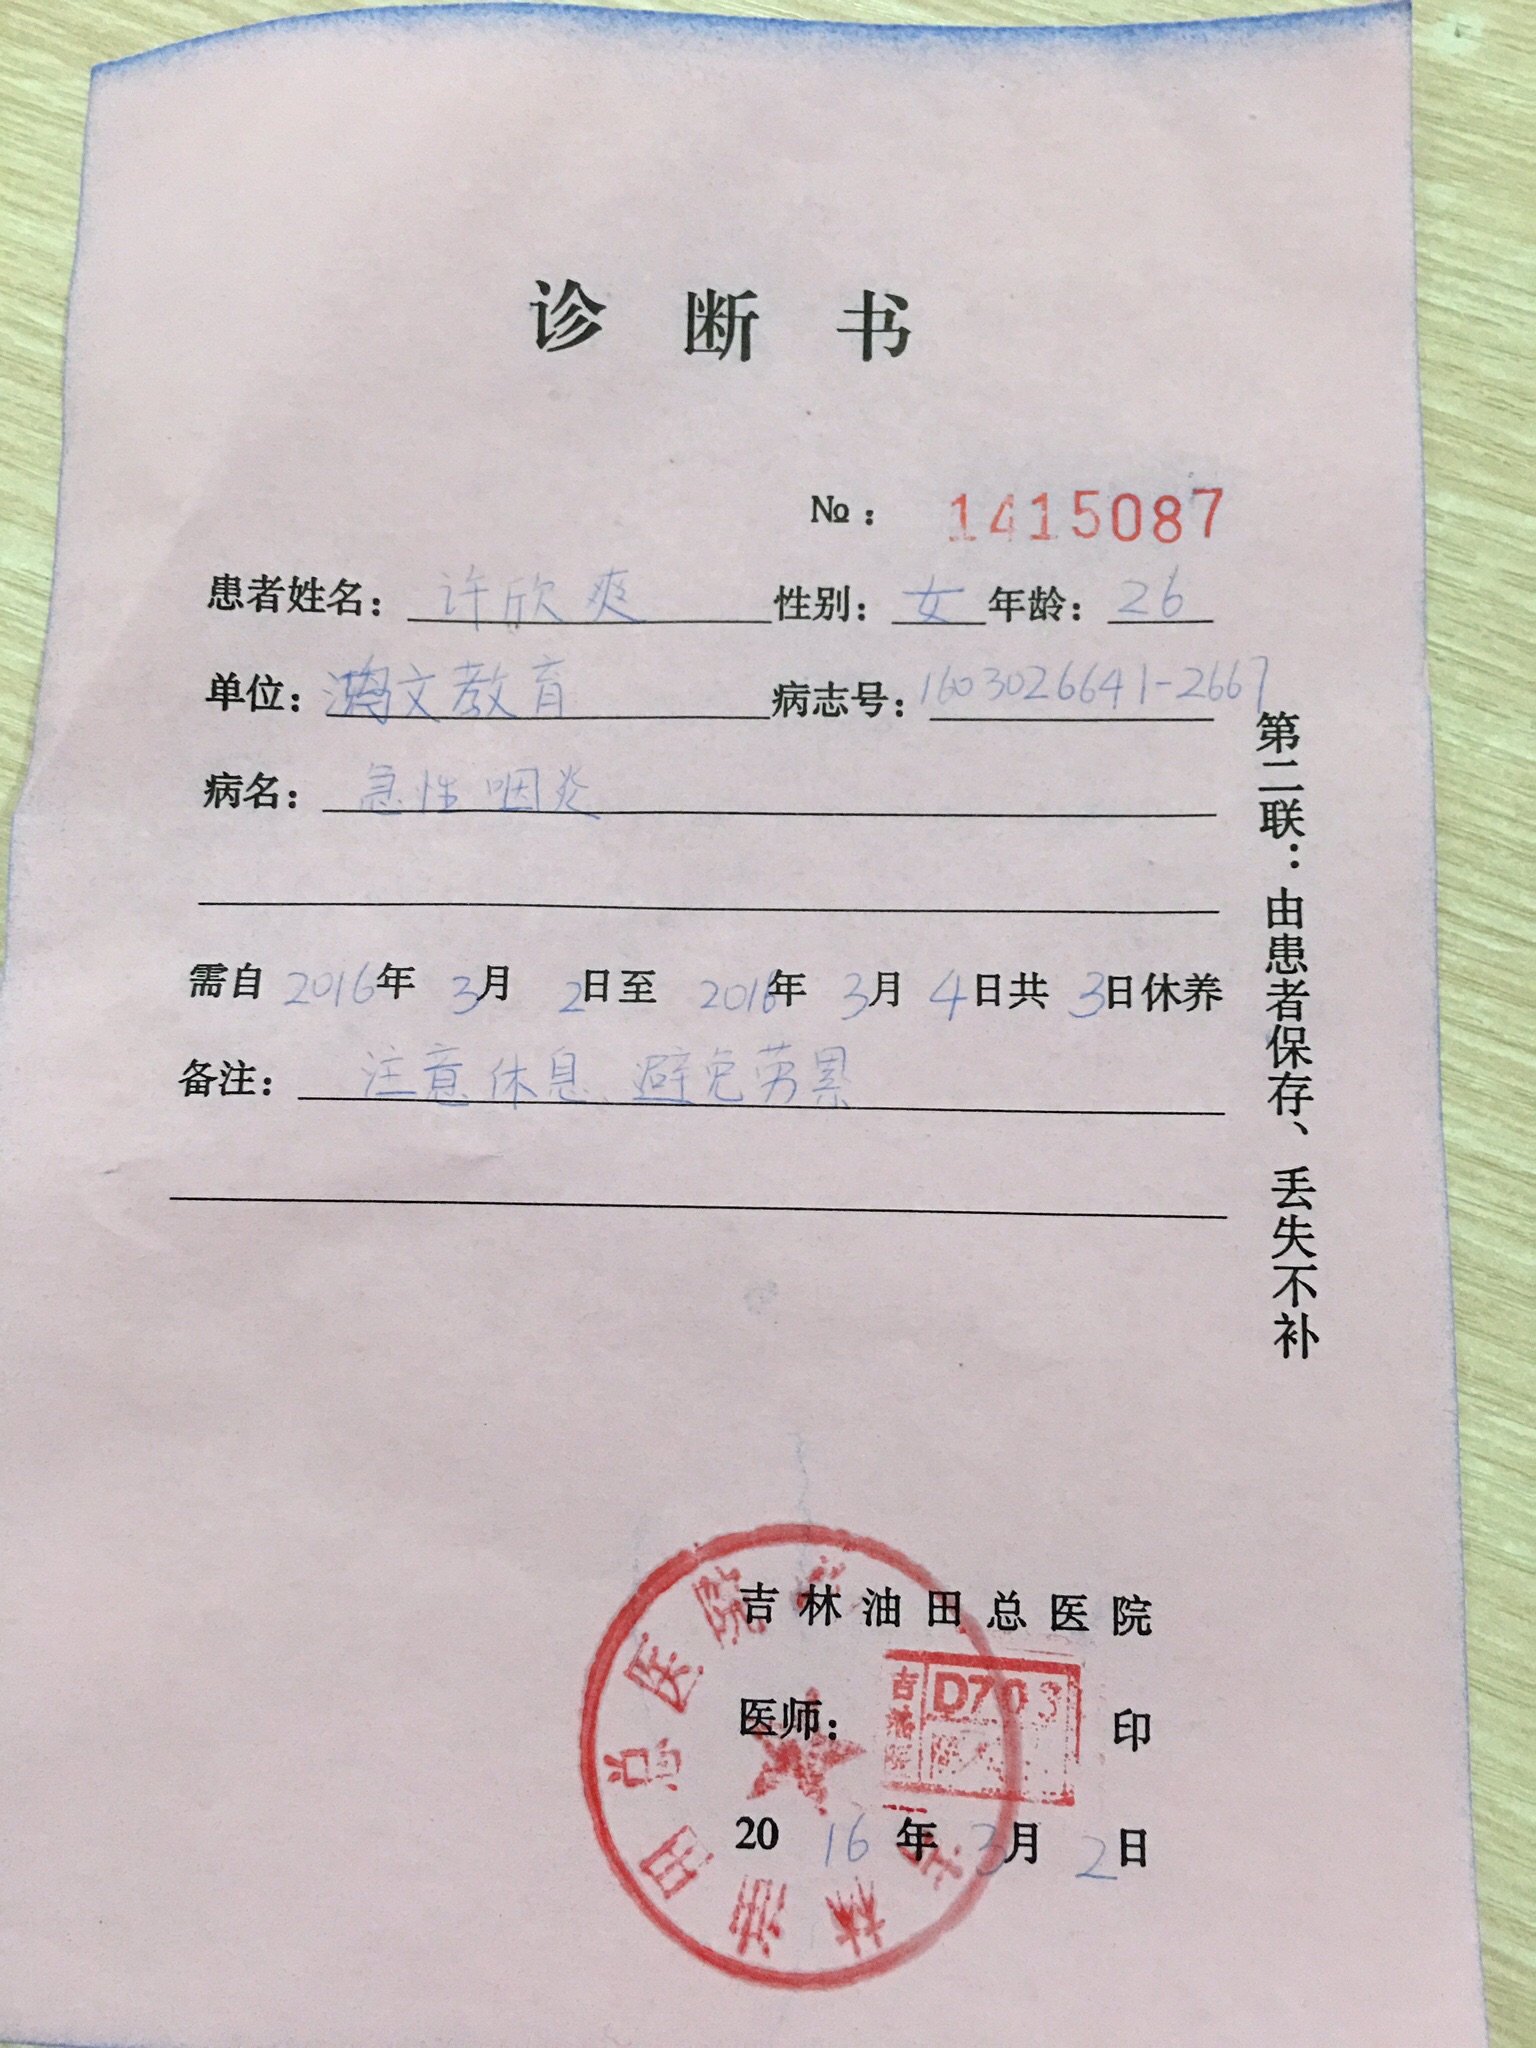 诊断书
№: 1415087
患者姓名: 许欣爽 性别: 女 年龄: 26
单位: 文教育 病志号: 1603026641-2667
病名: 急性咽炎
需自 2016年 3月 2日至 2016年 3月 4日共 3日休养
备注: 注意休息、避免劳累
第二联：由患者保存、丢失不补
吉林油田总医院
医师: 印
D703
吉林油田总医院
2016年3月2日